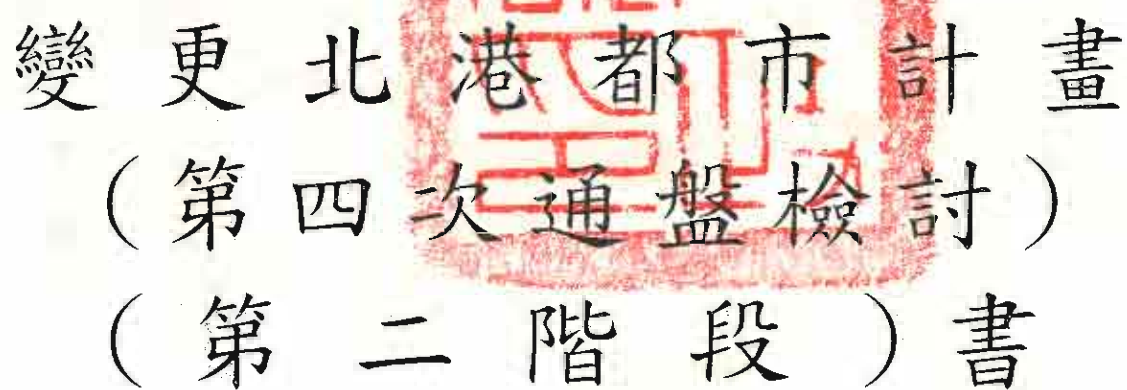 變更北港都市計畫
（第四次通盤檢討）
（第二階段）書